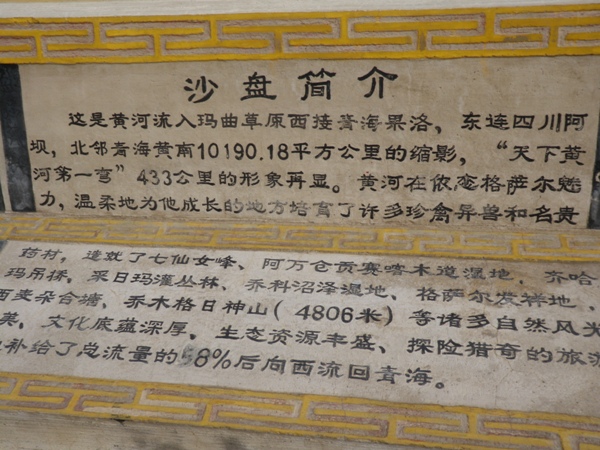 沙盘简介
这是黄河流入玛曲草原西接青海果洛，东连四川阿
坝，北邻青海黄南10190.18平方公里的缩影，“天下黄
河第一弯”433公里的形象再显。黄河在依恋格萨尔魅
力，温柔地为他成长的地方培育了许多珍禽异兽和名贵
药材，造就了七仙女峰、阿万仓贡赛喀木道湿地、齐哈
玛吊桥，采日玛灌丛林、乔科沼泽湿地、格萨尔发祥地、
西麦朵合塘，乔木格日神山（4806米）等诸多自然风光
美，文化底蕴深厚，生态资源丰盛、探险猎奇的旅游
补给了总流量的58%后向西流回青海。